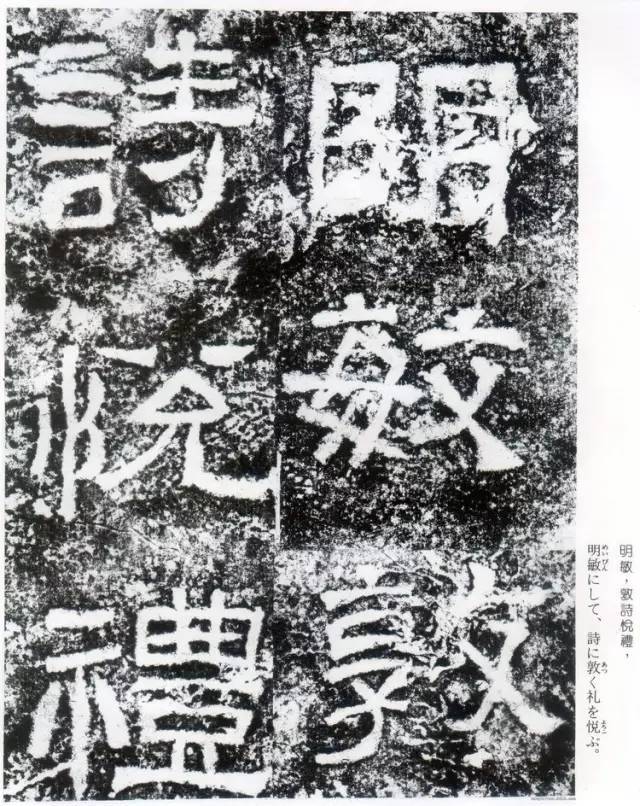 明敏敦
詩悦禮
明敏，敦詩悦禮，
明敏にして、詩に敦く礼を悦ぶ。